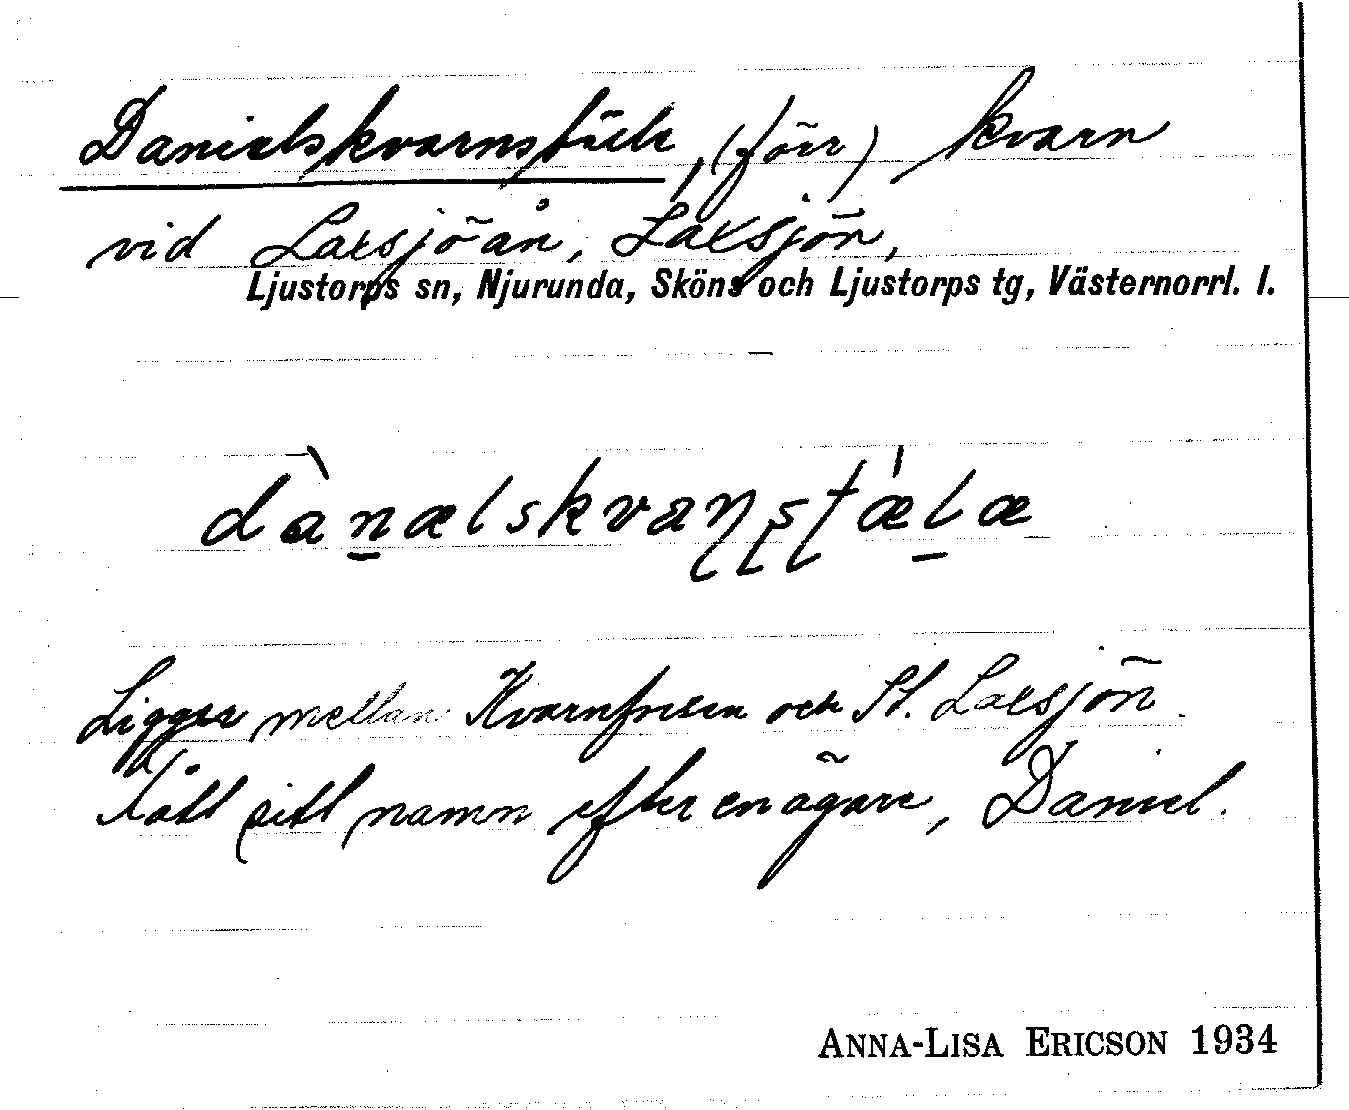 Danielskvarnställe, (förr) kvarn
vid Laxsjöån, Laxsjön,
Ljustorps sn, Njurunda, Sköns och Ljustorps tg, Västernorrl. l.
Ligger mellan Kvarnfors och St. Laxsjön.
Fått sitt namn efter en ägare, Daniel.
ANNA-LISA ERICSON 1934